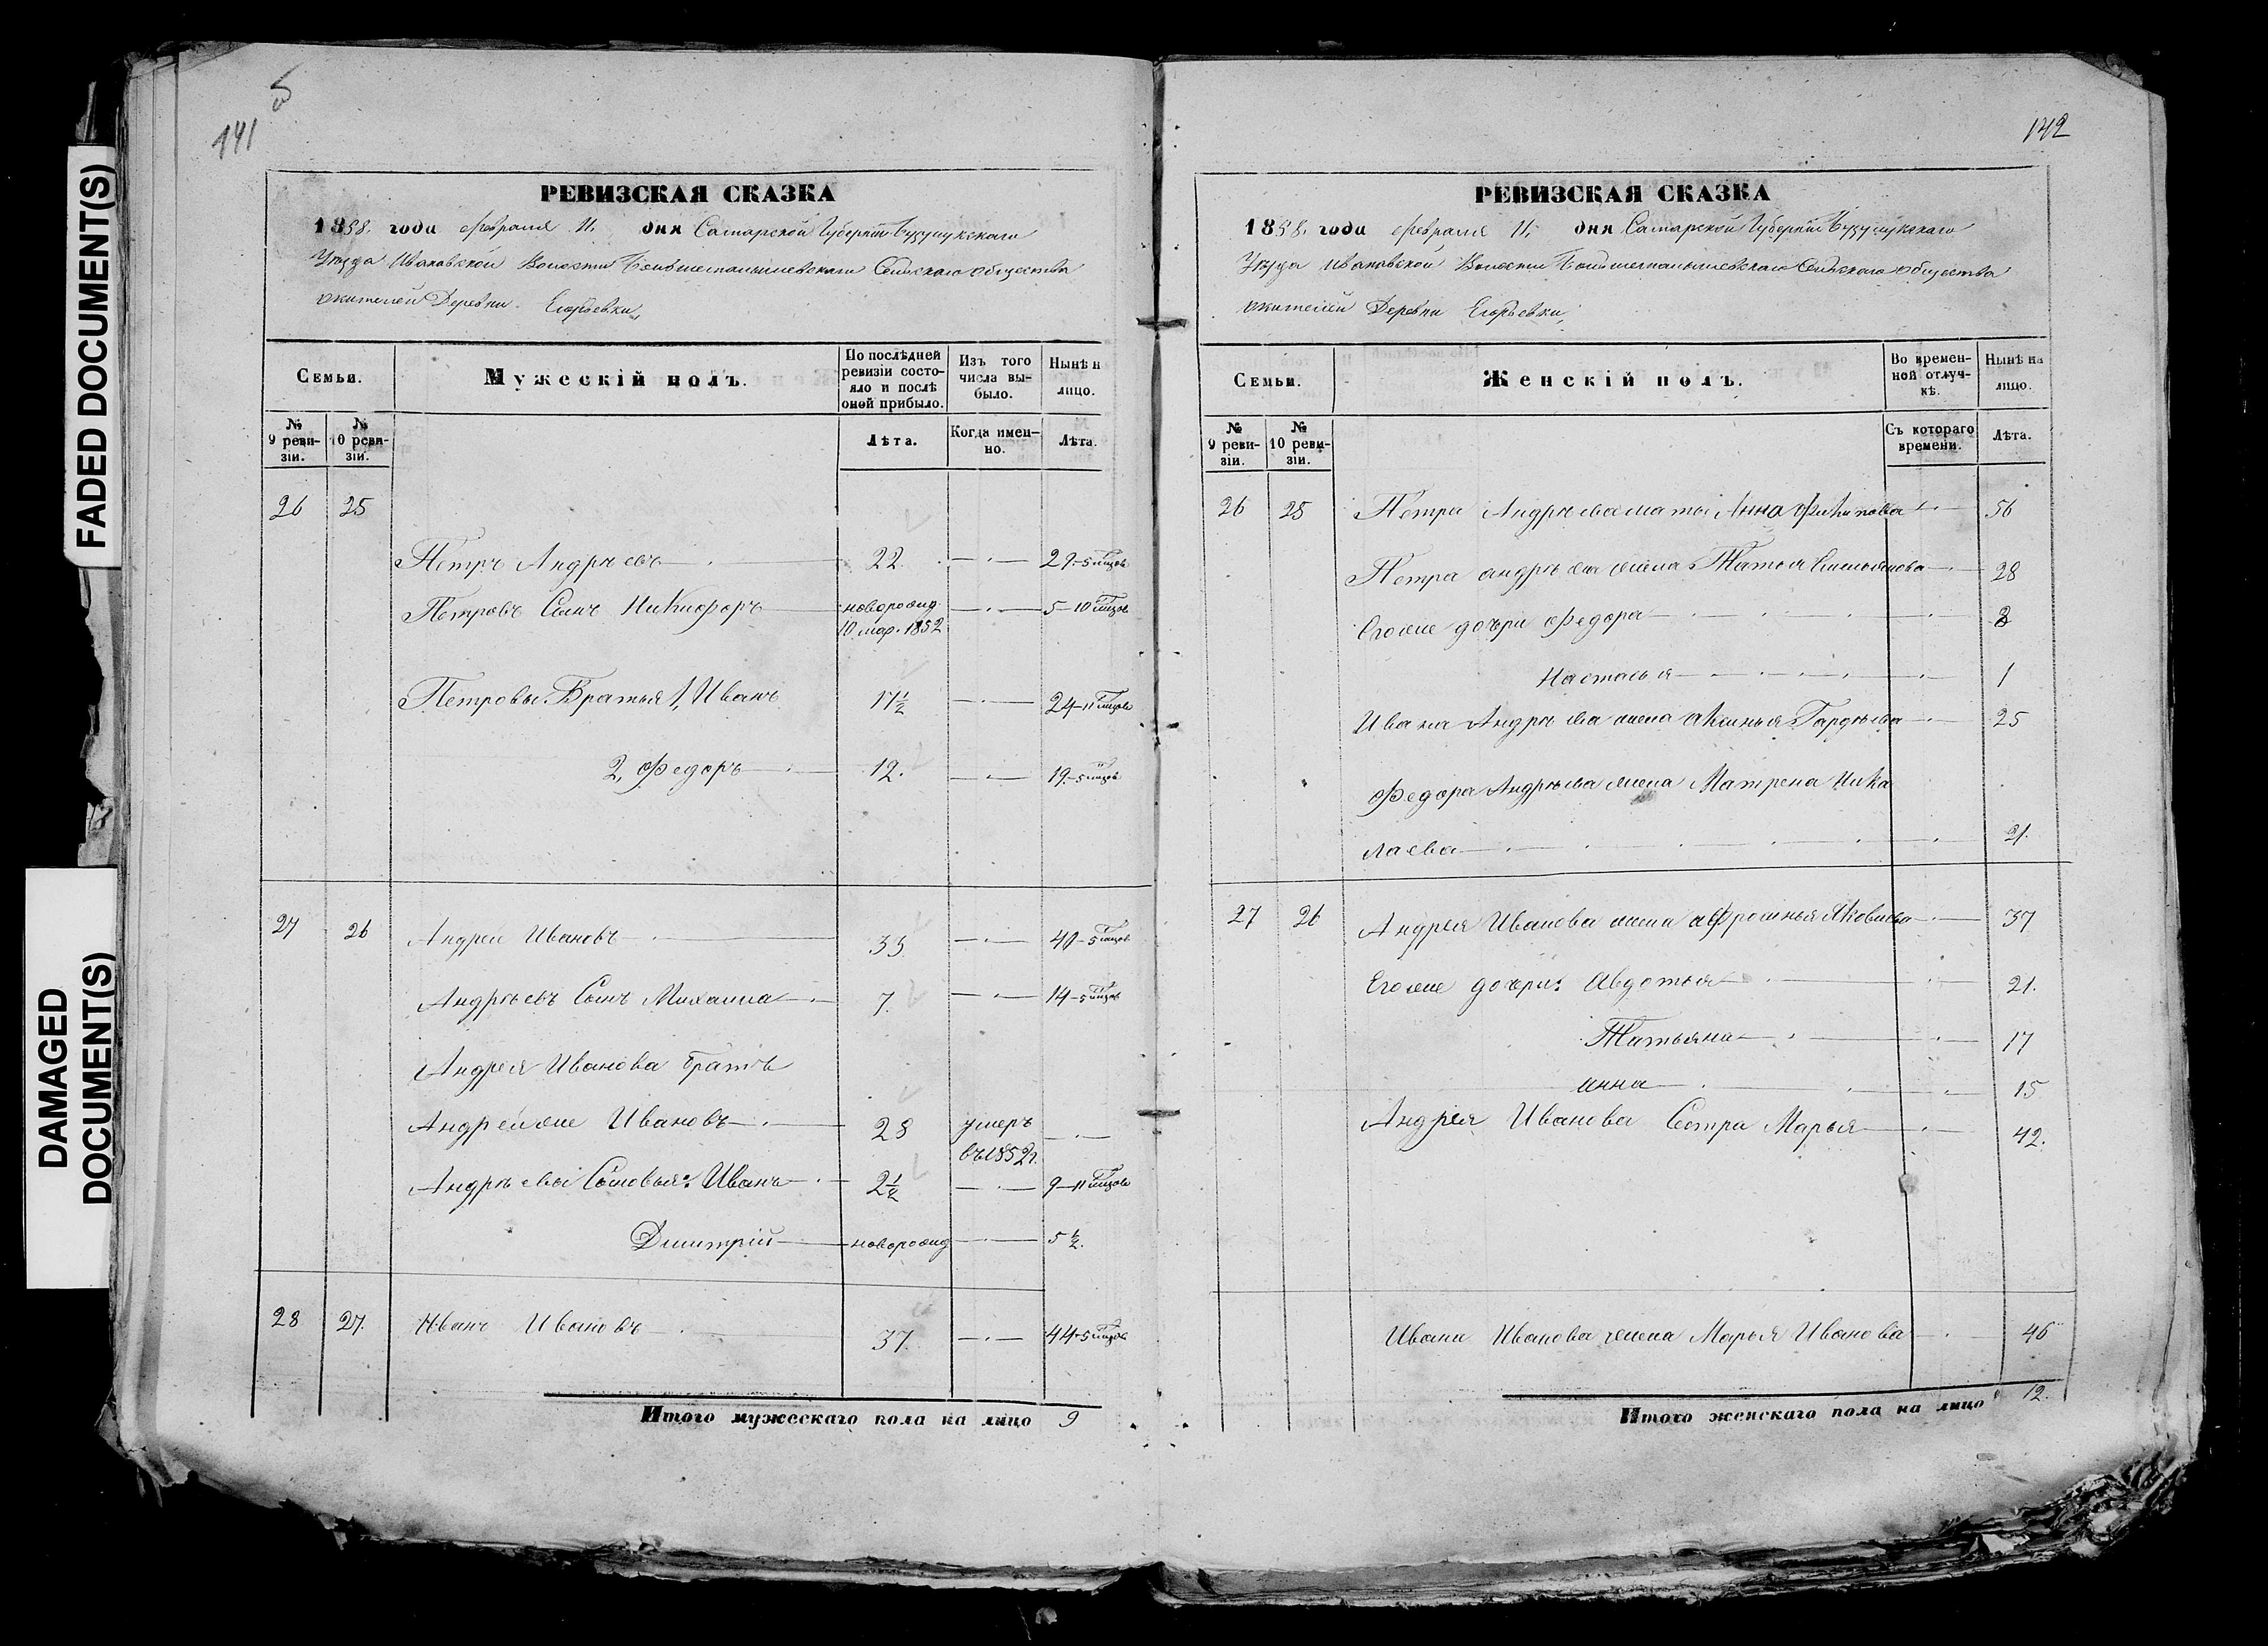 FADED DOCUMENT(S)
DAMAGED
DOCUMENT(S)
5
141
РЕВИЗСКАЯ СКАЗКА
1858. года февраля 11. дня Самарской Губерніи Бузулукскаго
Уѣзда Ивановской Волости Сельскаго общества
жителей Деревни Егорьевки
Семьи.
Мужескій полъ.
По послѣдней ревизіи состояло и послѣ оной прибыло.
Изъ того числа выбыло.
Нынѣ н лицо.
№ 9 ревизіи.
№ 10 ревизіи.
Лѣта.
Когда именно.
Лѣта.
26 25
Петръ Андрѣевъ 22. 29-5 мѣцов
Петровъ Сынъ Никифоръ новорожд. 5-10 мѣцов
10 мар. 1852
Петровы Братья 1, Иванъ 17½ 24-11 мѣцов
2, Федоръ 12. 19-5 мѣцов
27 26 Андрей Ивановъ 33 40-5 мѣцов
Андрѣевъ Сынъ Михаила 7. 14-5 мѣцов
Андрея Иванова братъ
Андрей же Ивановъ 28 умеръ
въ 1852 г.
Андрѣевы Сыновья: Иванъ 2½ 9-11 мѣцов
Дмитрій новорожд 5½.
28 27. Иванъ Ивановъ 37. 44-5 мѣцов
Итого мужескаго пола на лицо 9
142
РЕВИЗСКАЯ СКАЗКА
1858. года февраля 11. дня Самарской Губерніи Бузулукскаго
Уѣзда Ивановской Волости Сельскаго общества
жителей Деревни Егорьевки,
Семьи.
Женскій полъ.
Во временной отлучкѣ.
Нынѣ на лицо.
№ 9 ревизіи.
№ 10 ревизіи.
Съ котораго времени.
Лѣта.
26 25 Петра Андрѣева мать Анна Филипова 56
Петра андрѣева жена Татья Емельянова 28
Егоже дочри Федора 3
Настасья 1
Ивана Андрѣева жена Аксинья Гордѣева 25
Федора Андрѣева жена Матрена Ника
лаева 21.
27 26 Андрея Иванова жена афросинья Яковлева 37
Егоже дочри: Авдотья 21.
Татьяна 17
анна 15
Андрея Иванова Сестра Марья 42.
Ивана Иванова жена Марья Иванова 46
Итого женскаго пола на лицо 12.